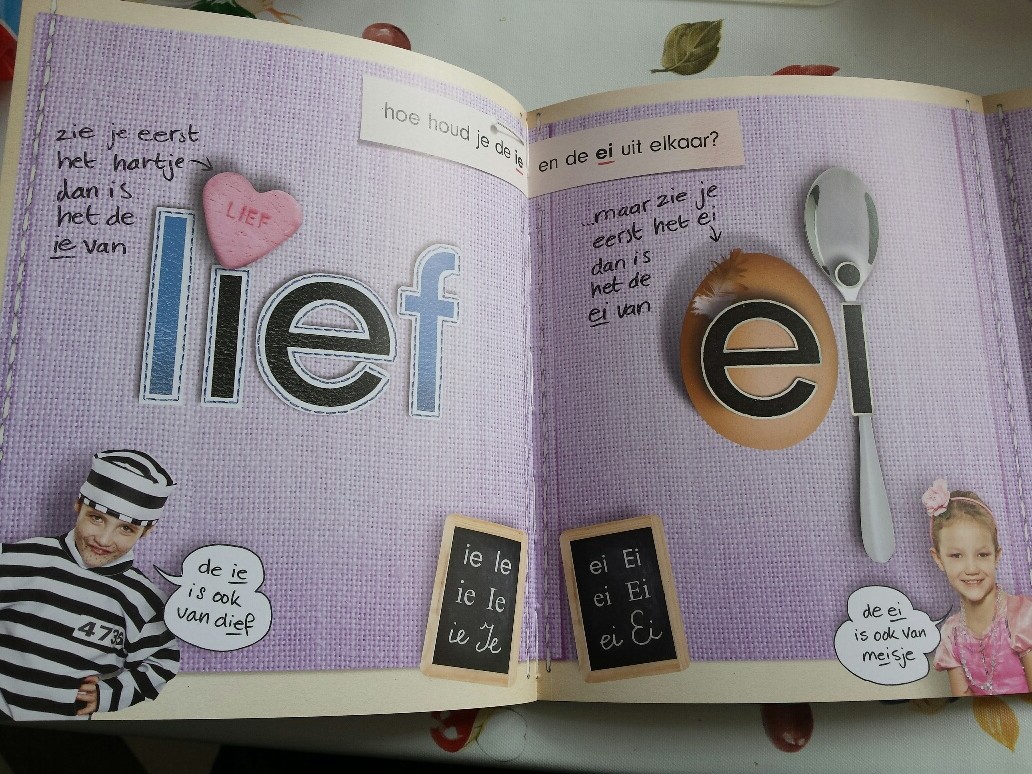 hoe houd je de ie en de ei uit elkaar?
zie je eerst
het hartje
dan is
het de
ie van
LIEF
lief
de ie
is ook
van dief
4736
ie Ie
ie Ie
ie Ie
...maar zie je
eerst het ei
dan is
het de
ei van
ei
ei Ei
ei Ei
ei Ei
de ei
is ook van
meisje